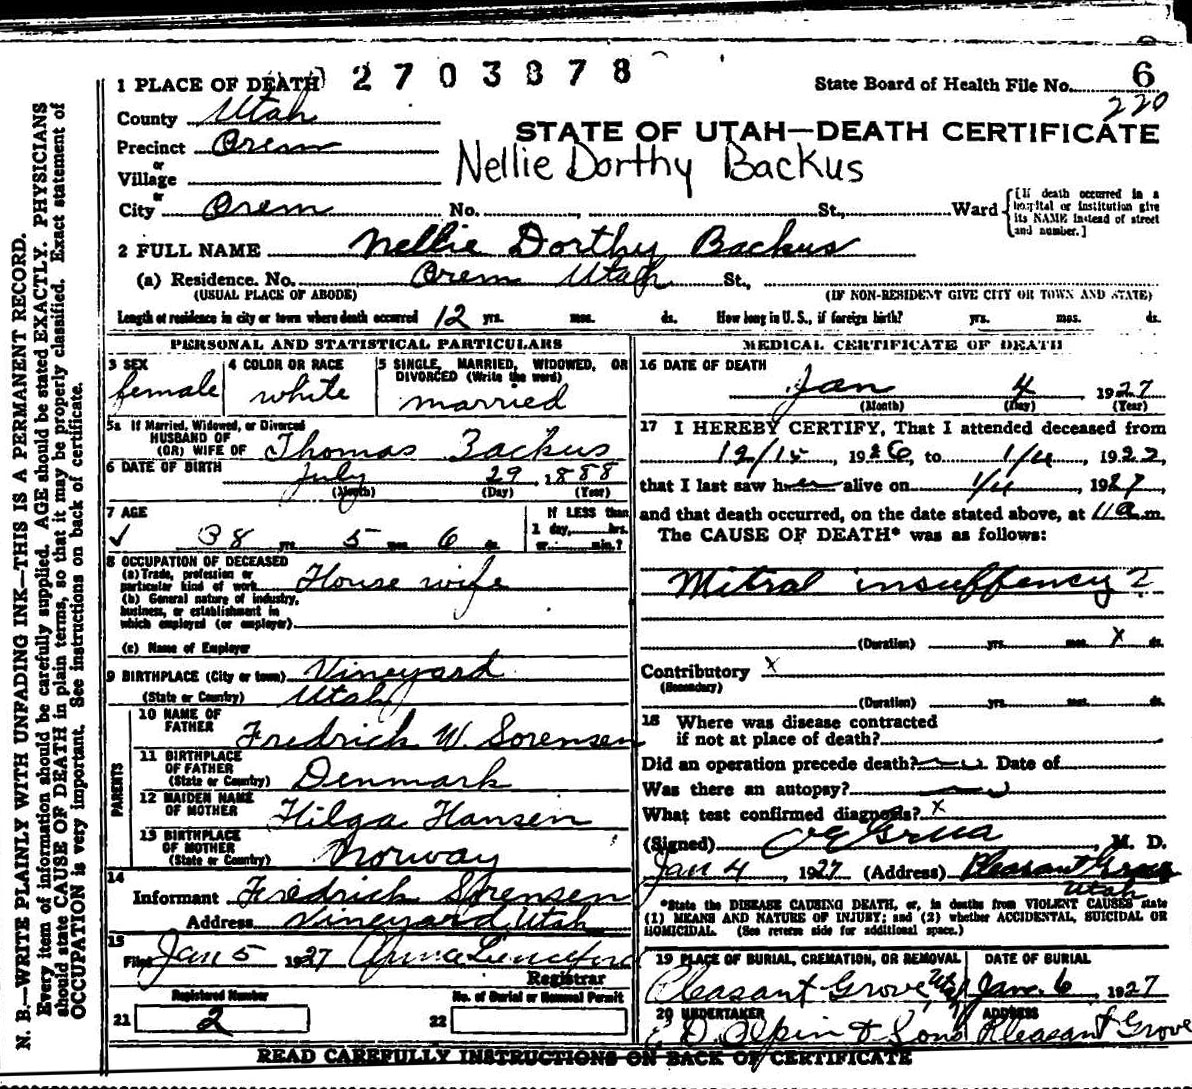 1 PLACE OF DEATH 2 7 0 3 8 7 8 State Board of Health File No. 6
220
County Utah
STATE OF UTAH—DEATH CERTIFICATE
Precinct Orem
or
Village
Nellie Dorthy Backus
or
City Orem No. , St., Ward [If death occurred in a hospital or institution give its NAME instead of street and number.]
2 FULL NAME Nellie Dorthy Backus
(a) Residence. No. Orem Utah St.,
(USUAL PLACE OF ABODE) (IF NON-RESIDENT GIVE CITY OR TOWN AND STATE)
Length of residence in city or town where death occurred 12 yrs. mos. ds. How long in U. S., if foreign birth? yrs. mos. ds.
PERSONAL AND STATISTICAL PARTICULARS
3 SEX 4 COLOR OR RACE 5 SINGLE, MARRIED, WIDOWED, OR DIVORCED (Write the word)
female white married
5a If Married, Widowed, or Divorced
HUSBAND OF
(OR) WIFE OF Thomas Backus
6 DATE OF BIRTH July 29, 1888
(Month) (Day) (Year)
7 AGE If LESS than
1 day, hrs.
38 yrs. 5 mos. 6 ds. or min.?
8 OCCUPATION OF DECEASED
(a) Trade, profession or
particular kind of work House wife
(b) General nature of industry,
business, or establishment in
which employed (or employer)
(c) Name of Employer
9 BIRTHPLACE (City or town) Vineyard
(State or Country) Utah
PARENTS
10 NAME OF
FATHER Fredrick W. Sorensen
11 BIRTHPLACE
OF FATHER
(State or Country) Denmark
12 MAIDEN NAME
OF MOTHER Hilga Hansen
13 BIRTHPLACE
OF MOTHER
(State or Country) Norway
14
Informant Fredrick Sorensen
Address Vineyard Utah
15
Filed Jan 5 1927
Registrar
Registered Number No. of Burial or Removal Permit
21 2 22
MEDICAL CERTIFICATE OF DEATH
16 DATE OF DEATH
Jan 4 1927
(Month) (Day) (Year)
17 I HEREBY CERTIFY, That I attended deceased from
12/15, 1926, to 1/4, 1922,
that I last saw her alive on 1/4, 1927,
and that death occurred, on the date stated above, at 11 a.m.
The CAUSE OF DEATH* was as follows:
Mitral insuffency 2
(Duration) yrs. mos. x ds.
Contributory x
(Secondary)
(Duration) yrs. mos. ds.
18 Where was disease contracted
if not at place of death?
Did an operation precede death? no Date of
Was there an autopsy? no
What test confirmed diagnosis? x
(Signed) Grua, M. D.
Jan 4 1927 (Address) Pleasant Grove
Utah
*State the DISEASE CAUSING DEATH, or, in deaths from VIOLENT CAUSES state
(1) MEANS AND NATURE OF INJURY; and (2) whether ACCIDENTAL, SUICIDAL OR
HOMICIDAL. (See reverse side for additional space.)
19 PLACE OF BURIAL, CREMATION, OR REMOVAL DATE OF BURIAL
Pleasant Grove, Utah Jan. 6, 1927
20 UNDERTAKER ADDRESS
D. Olpin & Sons Pleasant Grove
READ CAREFULLY INSTRUCTIONS ON BACK OF CERTIFICATE
N. B.—WRITE PLAINLY WITH UNFADING INK—THIS IS A PERMANENT RECORD.
Every item of information should be carefully supplied. AGE should be stated EXACTLY. PHYSICIANS
should state CAUSE OF DEATH in plain terms, so that it may be properly classified. Exact statement of
OCCUPATION is very important. See instructions on back of certificate.